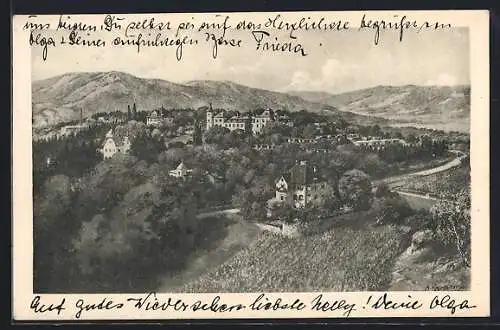 uns zeigen, Du selbst sei auf das Herzlichste begrüßt von
Olga & Deiner aufrichtigen Frieda
Auf gutes Wiedersehen liebste Nelly! Deine Olga